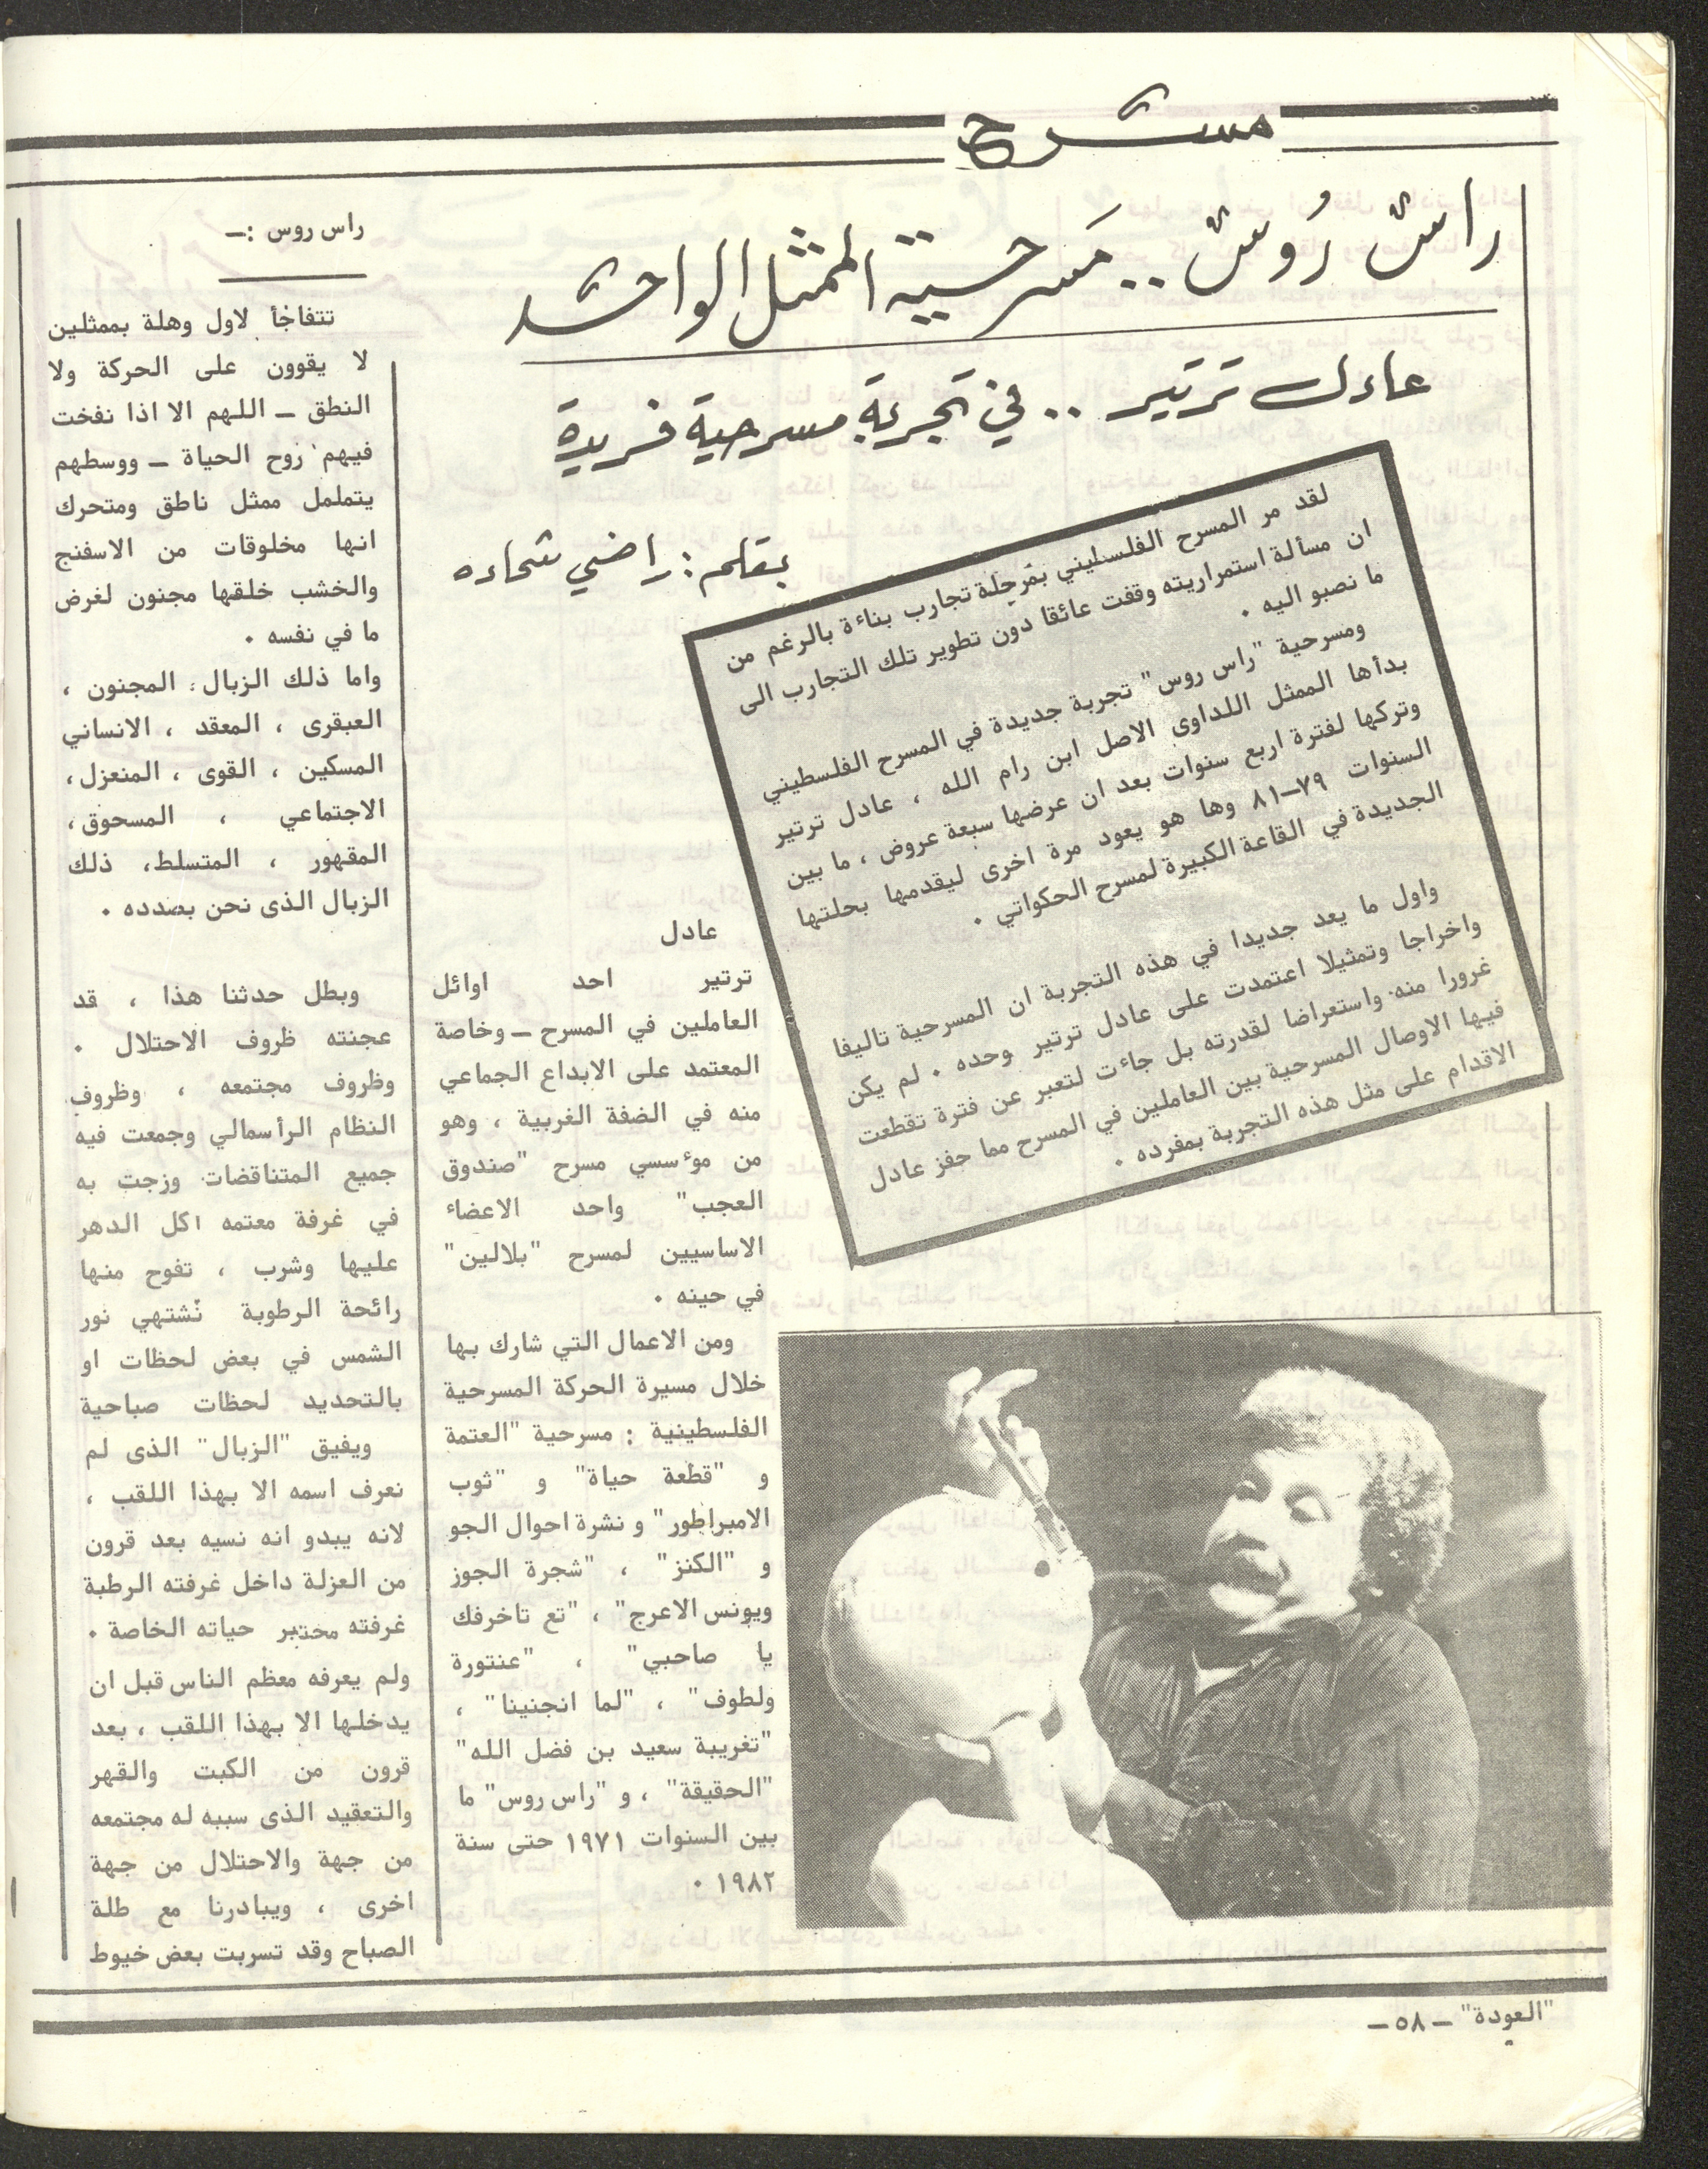 مسرح
راس رُوس .. مَسرحية الممثل الواحد
عادل ترتير .. في تجربة مسرحية فريدة
بقلم : راضي شحاده
لقد مر المسرح الفلسطيني بمرحلة تجارب بناءة بالرغم من
ان مسألة استمراريته وقفت عائقا دون تطوير تلك التجارب الى
ما نصبو اليه .
ومسرحية "راس روس" تجربة جديدة في المسرح الفلسطيني
بدأها الممثل اللداوى الاصل ابن رام الله ، عادل ترتير
وتركها لفترة اربع سنوات بعد ان عرضها سبعة عروض ، ما بين
السنوات ٧٩–٨١ وها هو يعود مرة اخرى ليقدمها بحلتها
الجديدة في القاعة الكبيرة لمسرح الحكواتي .
واول ما يعد جديدا في هذه التجربة ان المسرحية تاليفا
واخراجا وتمثيلا اعتمدت على عادل ترتير وحده . لم يكن
غرورا منه واستعراضا لقدرته بل جاءت لتعبر عن فترة تقطعت
فيها الاوصال المسرحية بين العاملين في المسرح مما حفز عادل
الاقدام على مثل هذه التجربة بمفرده .
عادل
ترتير احد اوائل
العاملين في المسرح – وخاصة
المعتمد على الابداع الجماعي
منه في الضفة الغربية ، وهو
من موءسسي مسرح "صندوق
العجب" واحد الاعضاء
الاساسيين لمسرح "بلالين"
في حينه .
ومن الاعمال التي شارك بها
خلال مسيرة الحركة المسرحية
الفلسطينية : مسرحية "العتمة
و "قطعة حياة" و "ثوب
الامبراطور" و نشرة احوال الجو
و "الكنز" ، "شجرة الجوز
ويونس الاعرج" ، "تع تاخرفك
يا صاحبي" ، "عنتورة
ولطوف" ، "لما انجنينا" ،
"تغريبة سعيد بن فضل الله"
"الحقيقة" ، و "راس روس" ما
بين السنوات ١٩٧١ حتى سنة
١٩٨٢ .
راس روس :–
تتفاجأ لاول وهلة بممثلين
لا يقوون على الحركة ولا
النطق – اللهم الا اذا نفخت
فيهم روح الحياة – ووسطهم
يتململ ممثل ناطق ومتحرك
انها مخلوقات من الاسفنج
والخشب خلقها مجنون لغرض
ما في نفسه .
واما ذلك الزبال : المجنون ،
العبقرى ، المعقد ، الانساني
المسكين ، القوى ، المنعزل ،
الاجتماعي ، المسحوق ،
المقهور ، المتسلط ، ذلك
الزبال الذى نحن بصدده .
وبطل حدثنا هذا ، قد
عجنته ظروف الاحتلال .
وظروف مجتمعه ، وظروف
النظام الرأسمالي وجمعت فيه
جميع المتناقضات وزجت به
في غرفة معتمه اكل الدهر
عليها وشرب ، تفوح منها
رائحة الرطوبة تشتهي نور
الشمس في بعض لحظات او
بالتحديد لحظات صباحية
ويفيق "الزبال" الذى لم
نعرف اسمه الا بهذا اللقب ،
لانه يبدو انه نسيه بعد قرون
من العزلة داخل غرفته الرطبة
غرفته مختبر حياته الخاصة .
ولم يعرفه معظم الناس قبل ان
يدخلها الا بهذا اللقب ، بعد
قرون من الكبت والقهر
والتعقيد الذى سببه له مجتمعه
من جهة والاحتلال من جهة
اخرى ، ويبادرنا مع طلة
الصباح وقد تسربت بعض خيوط
"العودة" – ٥٨ –